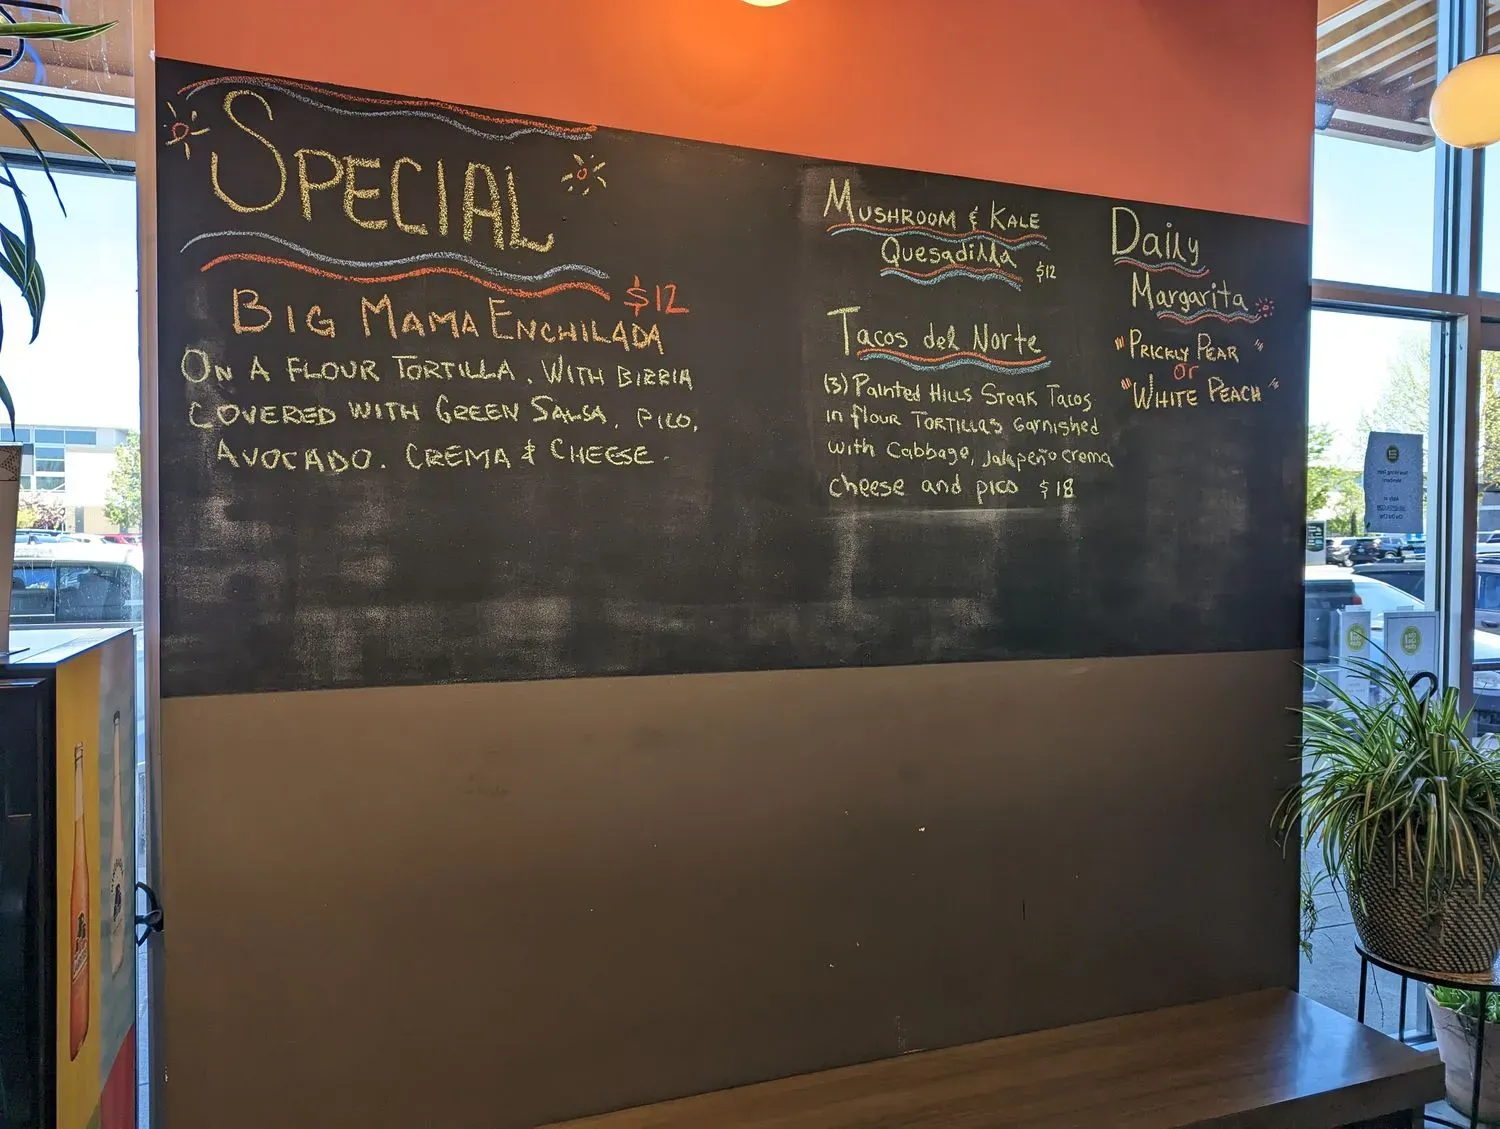 SPECIAL
BIG MAMA ENCHILADA $12
ON A FLOUR TORTILLA. WITH BIRRIA
COVERED WITH GREEN SALSA, PICO,
AVOCADO. CREMA & CHEESE.
MUSHROOM & KALE
Quesadilla $12
Tacos del Norte
(3) Painted HILLS STEAK TACOS
in flour TORTILLAS Garnished
with Cabbage, Jalapeño crema
cheese and pico $18
Daily
Margarita
"PRICKLY PEAR"
or
"WHITE PEACH"